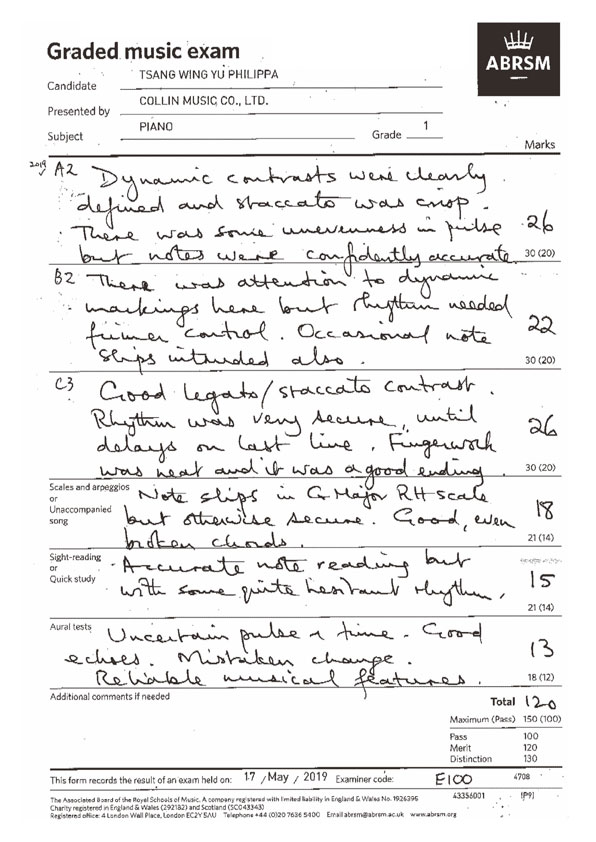 Graded music exam
ABRSM
Candidate TSANG WING YU PHILIPPA
Presented by COLLIN MUSIC CO., LTD.
Subject PIANO Grade 1
Marks
2019 A2 Dynamic contrasts were clearly
defined and staccato was crisp.
There was some unevenness in pulse 26
but notes were confidently accurate 30 (20)
B2 There was attention to dynamic
markings here but rhythm needed
firmer control. Occasional note 22
slips intruded also. 30 (20)
C3 Good legato/staccato contrast.
Rhythm was very secure, until
delays on last line. Fingerwork 26
was neat and it was a good ending 30 (20)
Scales and arpeggios
or
Unaccompanied
song
Note slips in G Major RH scale
but otherwise secure. Good, even 18
broken chords. 21 (14)
Sight-reading
or
Quick study
Accurate note reading but
with some quite hesitant rhythm. 15
21 (14)
Aural tests Uncertain pulse & time. Good
echoes. Mistaken change. 13
Reliable musical features. 18 (12)
Additional comments if needed
Total 120
Maximum (Pass) 150 (100)
Pass 100
Merit 120
Distinction 130
This form records the result of an exam held on: 17 / May / 2019 Examiner code: E100 4708
43356001 (P9)
The Associated Board of the Royal Schools of Music. A company registered with limited liability in England & Wales No. 1926395
Charity registered in England & Wales (292182) and Scotland (SC043343)
Registered office: 4 London Wall Place, London EC2Y 5AU Telephone +44 (0)20 7636 5400 Email abrsm@abrsm.ac.uk www.abrsm.org